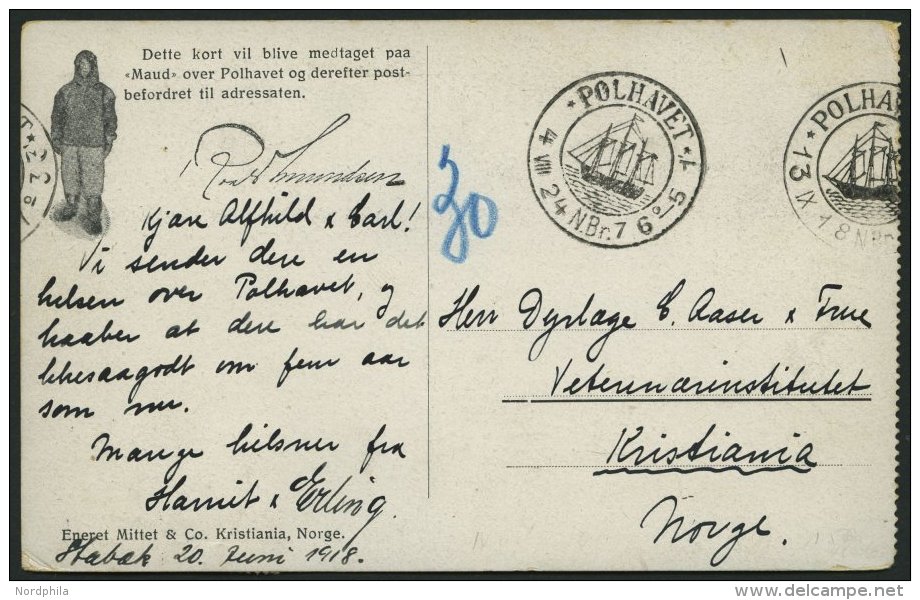 Dette kort vil blive medtaget paa
«Maud» over Polhavet og derefter post-
befordret til adressaten.
Roald Amundsen
Kjære Alfhild & Carl!
Vi sender dere en
helsen over Polhavet, og
haaber at dere har det
likesaagodt om fem aar
som nu.
Mange hilsner fra
Harriet & Erling.
Eneret Mittet & Co. Kristiania, Norge.
Stabæk 20. Juni 1918.
30
* POLHAVET *
4 VIII 24 N.Br. 76°-5
POLHAV
13 IX 18 N.Br.
Herr Dyrlæge C. Aaser & Frue
Veterinærinstitutet
Kristiania
Norge.
Nordphila